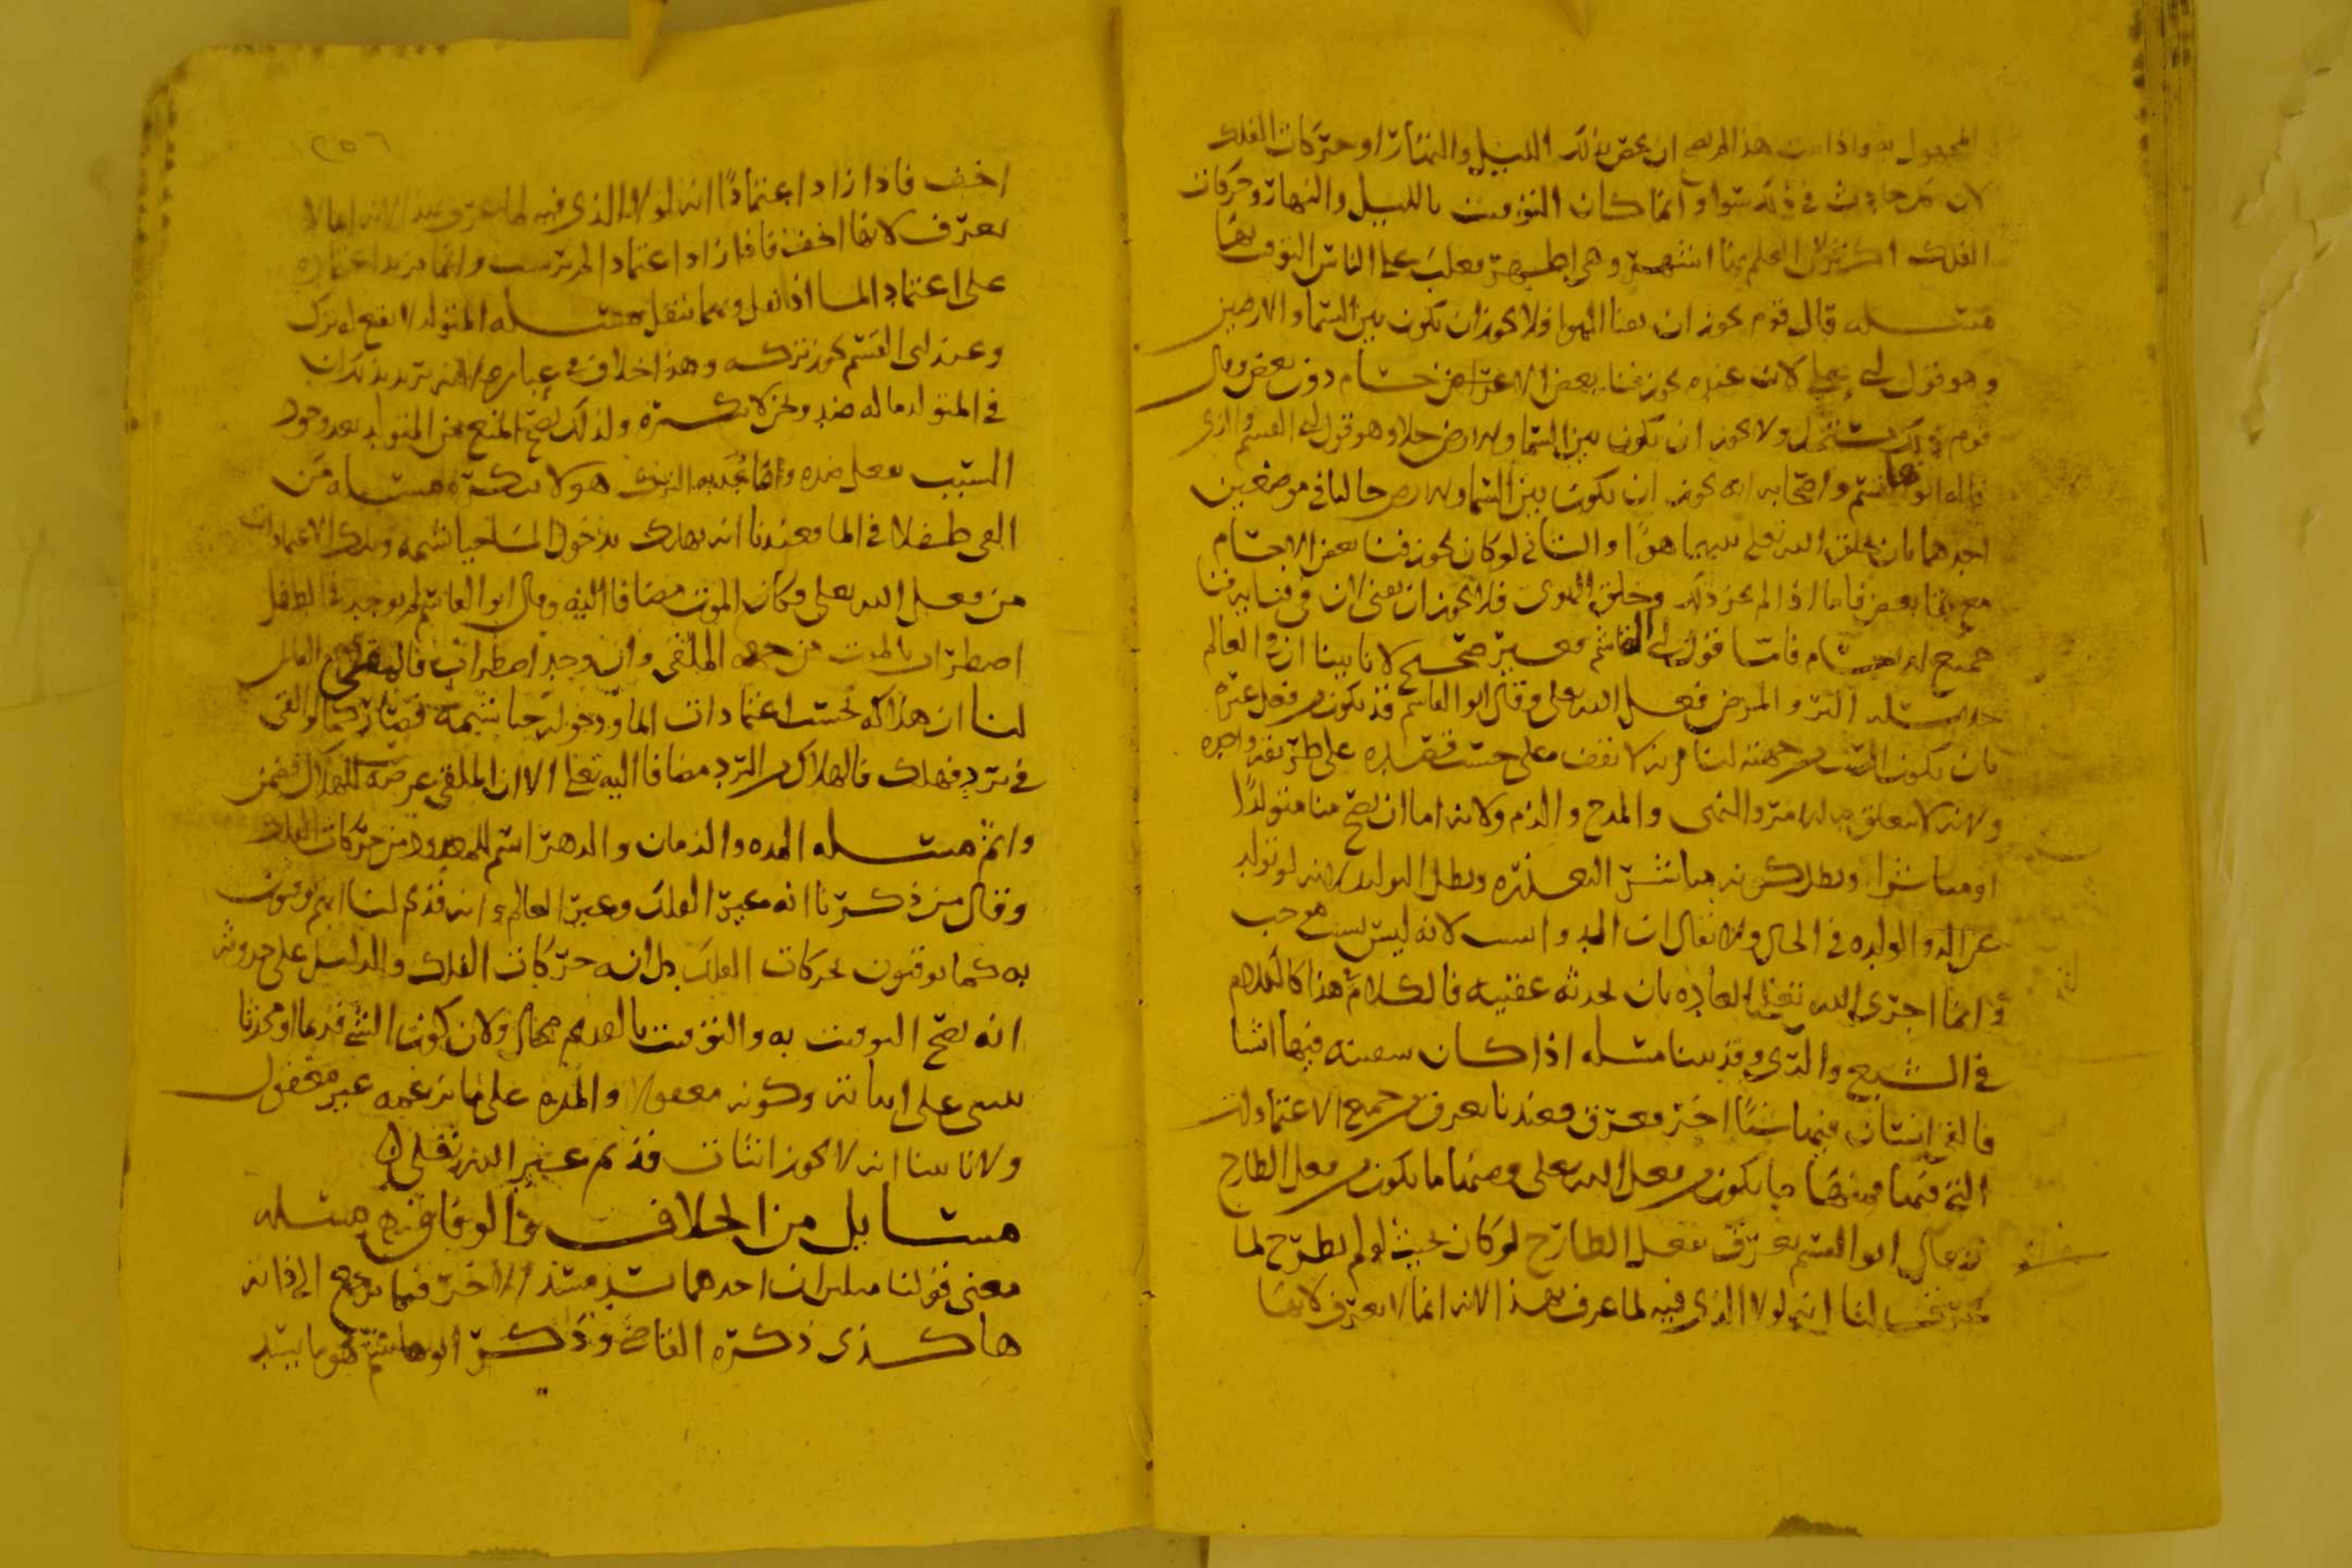 المجهول به واذا هذا لم يصح ان يحص بذلك الليل والنهار او حركات الفلك
لان كل حادث في ذلك سوا وانما كان التوقيت بالليل والنهار وحركات
الفلك اكثر لان العلم بها اشهر وهي اظهر فغلب على الناس التوقيت بها
مسله قال قوم يجوز ان يفنا الهوا فلا يجوز ان يكون بين السما والارضين
وهو قول لان عنده يجوز فنا بعض الاعراض دون بعض وقال
قوم ذلك يستحيل ولا يجوز ان يكون بين السما والارض خلا وهو قول ابي القسم والذي
قاله ابو هاشم واصحابه انه يجوز ان يكون بين السما والارض خاليا في موضعين
احدهما بان يخلق الله تعلى بينهما هوا والثاني لو كان يجوز فنا بعض الاجسام
مع بقا بعض فاما اذا لم يجز ذلك وخلق الهوى فلا يجوز ان يفنى لان في فنايه فنا
جميع الاجسام فاما قول ابي القاسم فغير صحيح لانا بينا ان في العالم
خلا مسله البرو المرض فعل الله تعلى وقال ابو القاسم قد يكون من فعل غيره
بان يكون السبب من جهته لنا انه لا يقف على حسب قصده على طريقه واحده
ولانه لا يتعلق به الامر والنهى والمدح والذم ولانه اما ان يصح منا متولدا
او مباشرا وبطل كونه مباشر التعذره وبطل التوليد لانه لو تولد
عن الدوا لولده في الحال ولا يقال ان الدوا سبب لانه ليس بسبب موجب
وانما اجرى الله تعلى العاده بان يحدثه عقيبه فالكلام هذا كالكلام
في الشبع والري وقد بينا مسله اذا كان سفينه فيها اشيا
فالقى انسان فيها شيا اخر فغرق فعندنا يغرق من جميع الاعتمادات
التي فيها فمنها ما يكون من فعل الله تعلى ومنها ما يكون من فعل الطارح
وقال ابو القسم يغرق بفعل الطارح لو كان بحيث لو لم يطرح لما
غرقت لنا انه لولا الذي فيه لما غرق بهذا لانه انما لا يغرق لانها
٢٥٦
اخف فاذا زاد اعتمادا انه لولا الذي فيه لما غرق بهذا لانه انما لا
يغرق لانها اخف فاذا زاد اعتماد لم يرسب وانما يزيد اعتماده
على اعتماد الما اذا ثقل وبهما يثقل مسله المتولد لا يقع له ترك
وعند ابي القسم يجوز تركه وهذا خلاف في عباره لانه يريد بذلك ان
في المتولد ما له ضد ونحن لا ننكره ولذلك يصح المنع من المتولد بعد وجود
السبب بفعل ضده وانما يحد به الترك هو لا ينكره مسله من
القى طفلا في الما فعندنا انه يهلك بدخول الما خياشيمه وتلك الاعتمادات
من فعل الله تعلى فكان الموت مضافا اليه وقال ابو القاسم ان لم يوجد في الطفل
اضطراب بالموت من جهه الملقى وان وجد اضطراب فالملقى
لنا ان هذا كله بحسب اعتمادات الما ودخوله خياشيمه فصار كما لو القى
في برد فهلك فالهلاك من البرد مضافا اليه تعلى الا ان الملقى عرضه للهلاك فضمن
واثم مسله المده والزمان والدهر اسم للمعدود من حركات الفلك
وقال من ذكرنا انه غير الفلك وغير العالم وانه قديم لنا انهم يوقتون
به كما يوقتون بحركات الفلك بل انه حركات الفلك والدليل على حدوثه
انه يصح التوقيت به والتوقيت بالقديم محال ولان كون الشي قديما او محدثا
يبنى على اثباته وكونه معقولا والمده على ما يزعمه غير معقول
ولانا بينا انه لا يجوز اثبات قديم غير الله تعلى
مسايل من الخلاف والوفاق مسله
معنى قولنا مثلان ان احدهما يسد مسد الاخر فيما يرجع الى ذاته
هاكذى ذكره القاضي وذكر ابو هاشم هو ما يسد